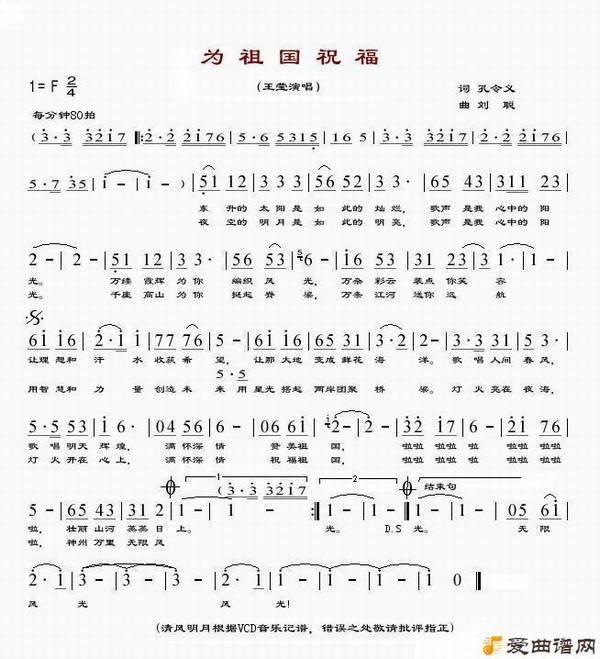 为祖国祝福
1=F 2/4
(王莹演唱)
词 孔令义
曲 刘 聪
每分钟80拍
(3·3 3217 |: 2·2 22176 | 5·6 5315 | 16 5 | 3·3 3217 | 2·2 22176 |
5·7 35 | 1 - | 1 - ) | 51 12 | 3 3 3 | 56 52 | 3 - | 65 43 | 311 23 |
东 升的 太 阳 是 如 此的 灿 烂, 歌声 是我 心中的 阳
夜 空的 明 月 是 如 此的 明 亮, 歌声 是我 心中的 阳
2 - | 2 - | 51 12 | 3 3· | 56 53 | 3 - | 65 43 | 31 23 |
光。 万缕 霞辉 为 你 编织 风 光, 万朵 彩云 装点 你笑 容
光。 千座 高山 为 你 挺起 脊 梁, 万条 江河 送你 远 航
61 16 | 1 2 | 77 76 | 5 - | 33 16 | 54 31 | 2 3· | 65 31 |
让理 想和 汗 水 收获 希 望, 让那 大地 变成 鲜花 海 洋。 歌唱 人间 春风,
用智 慧和 力 量 创造 未 来 用星光 搭起 两岸 团聚 桥 梁。 灯火 亮在 夜海,
5·5 53 | 1 6· | 04 56 | 1 6 | 5·2 | 2 - | 32 17 | 6 - | 22 16 |
歌 唱 明天 辉 煌, 满 怀深 情 赞 美祖 国, 啦啦 啦啦 啦 啦啦 啦啦
灯 火 开在 心 上, 满 怀深 情 祝 福祖 国, 啦啦 啦啦 啦 啦啦 啦啦
1 (3·3 3217)
2
结束句
5 - | 65 43 | 23 31 | 1 - | 1 - :| 1 - | 1 - | 1 - | 05 61 |
啦, 壮丽 山河 蒸蒸 日 上。 光。 D.S 光。 无限
啦, 神州 万里 无限 风
2·1 | 3 - | 3 - | 2·1 | 1 - | 1 - | 1 0 ||
风 光 风 光!
(清风明月根据VCD音乐记谱，错误之处敬请批评指正)
爱曲谱网